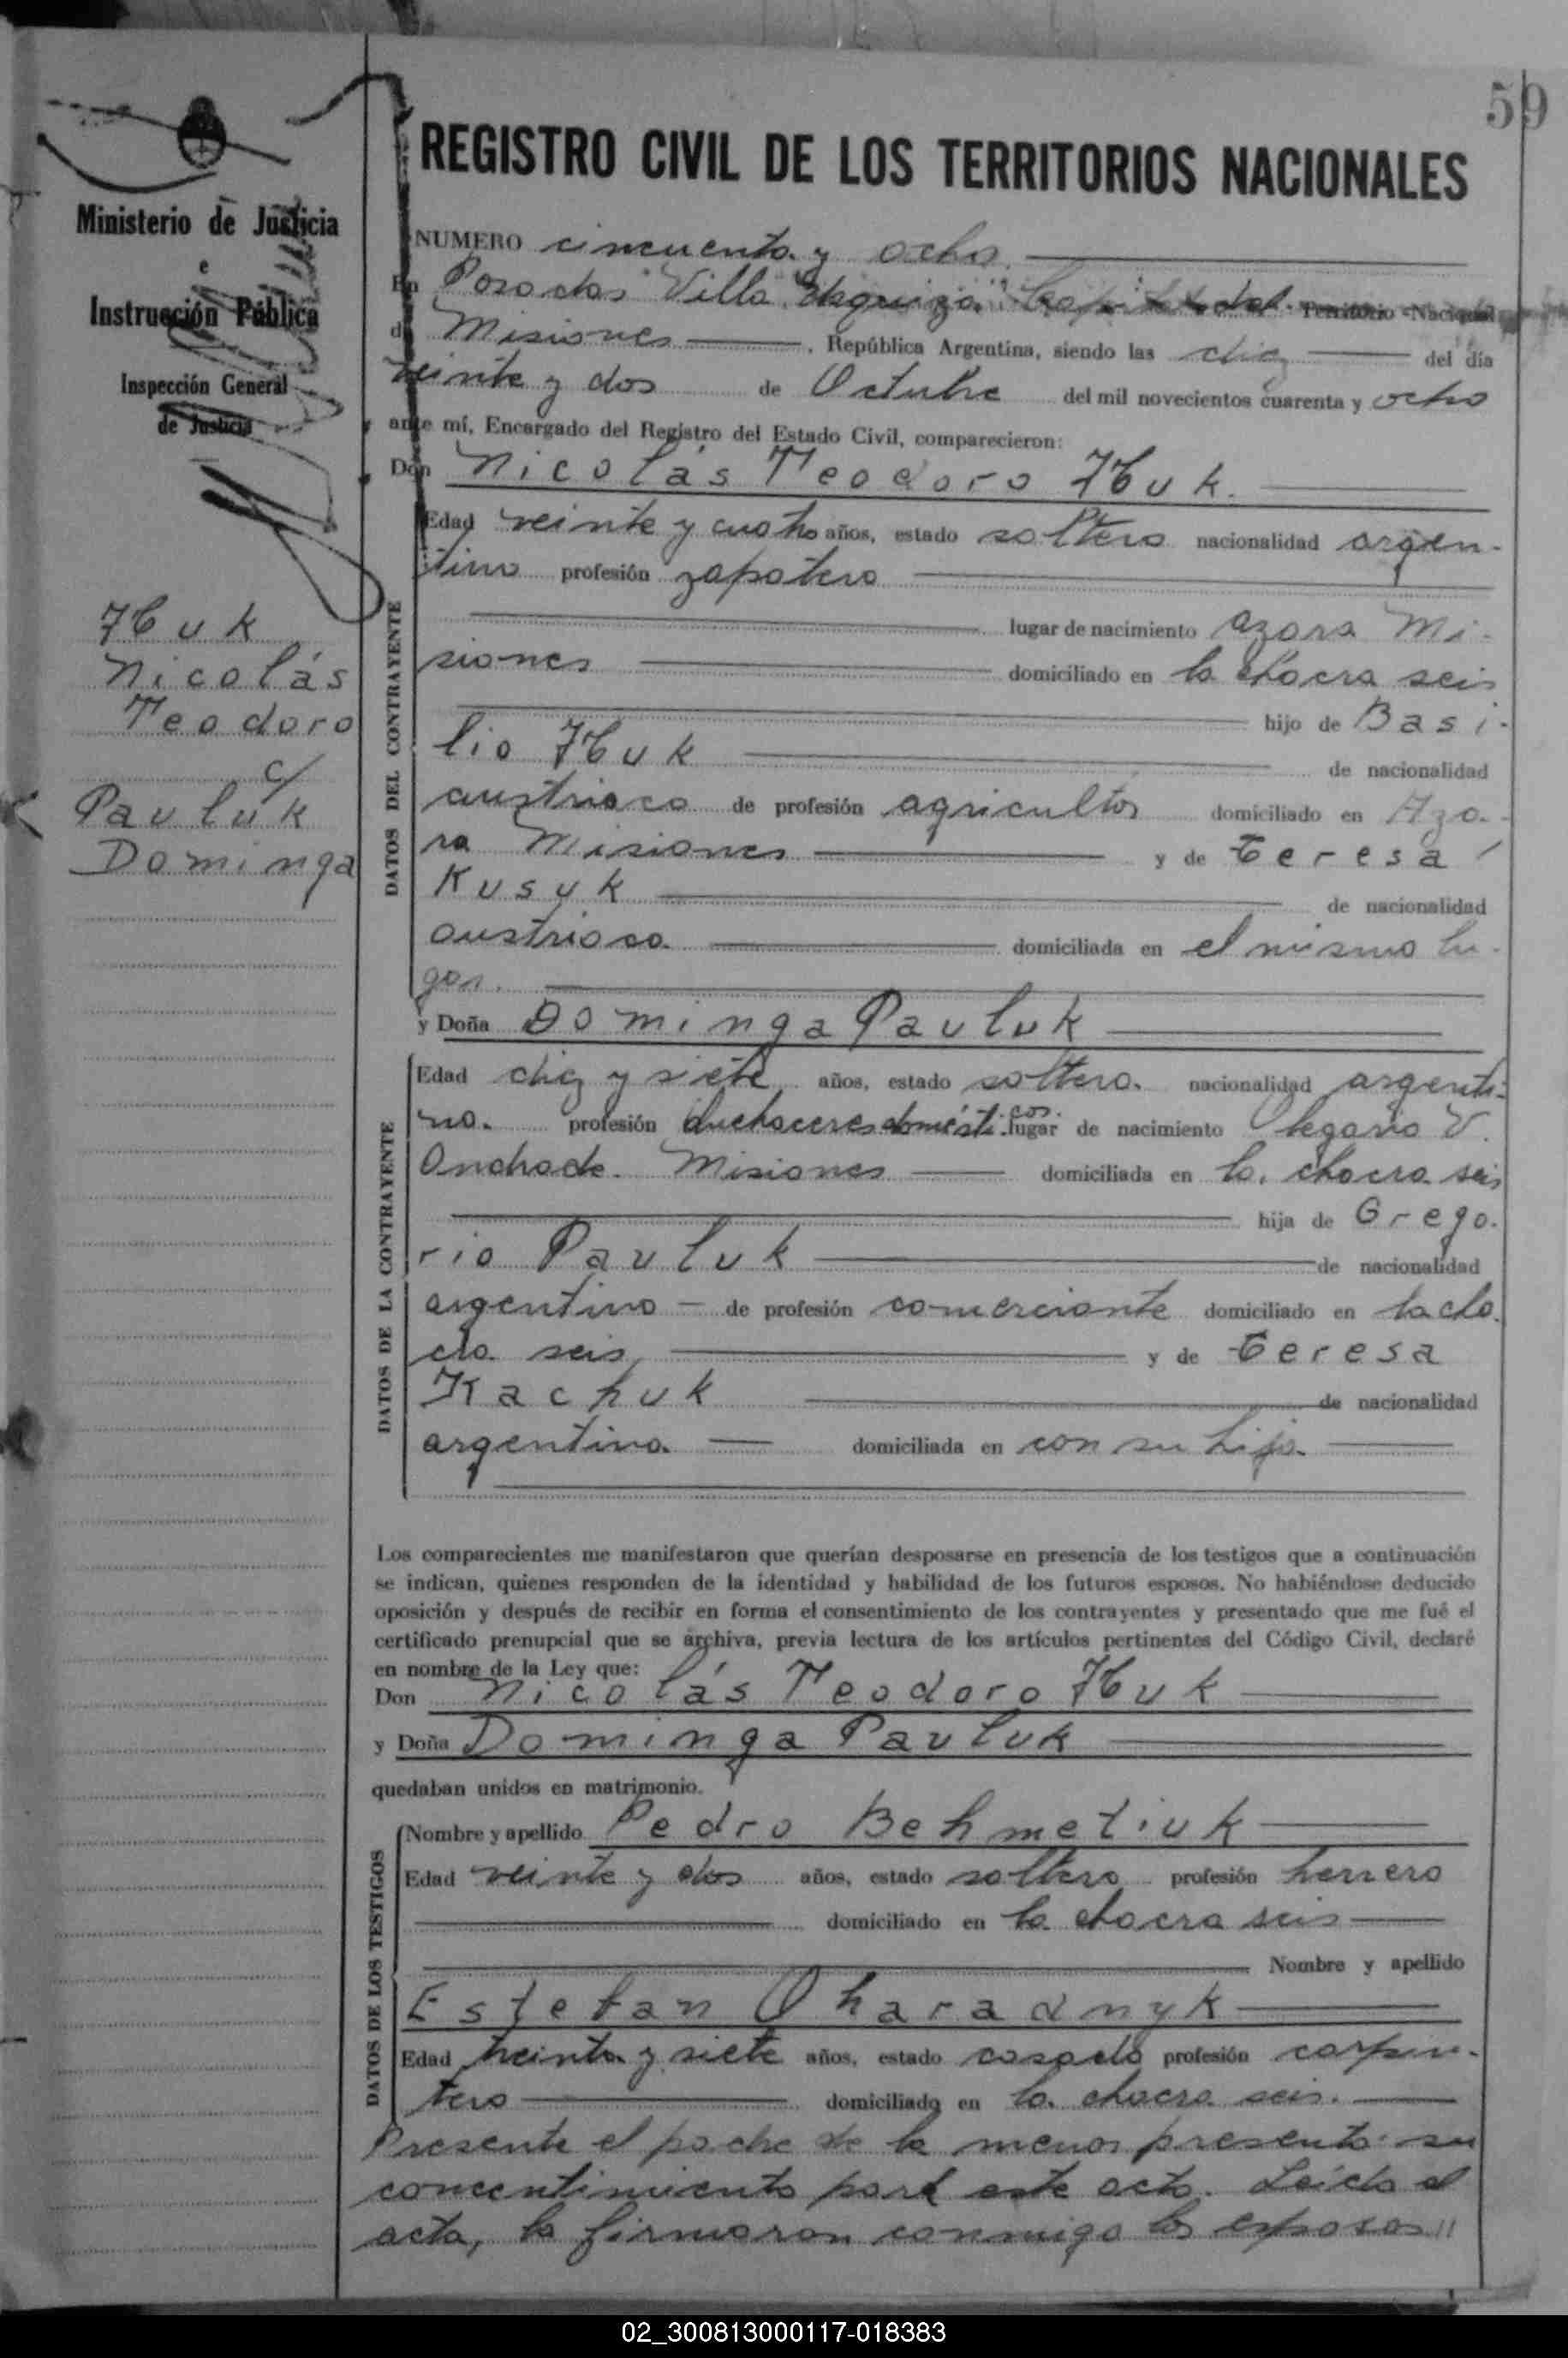 59
REGISTRO CIVIL DE LOS TERRITORIOS NACIONALES
Ministerio de Justicia
e
Instrucción Pública
Inspección General
de Justicia
Huk
Nicolás
Teodoro
c/
Pauluk
Dominga
NUMERO cincuenta y ocho.
En Posadas Villa "Urquiza" Capital del Territorio Nacional
de Misiones , República Argentina, siendo las diez del día
veinte y dos de Octubre del mil novecientos cuarenta y ocho
ante mí, Encargado del Registro del Estado Civil, comparecieron:
Don Nicolás Teodoro Huk.
DATOS DEL CONTRAYENTE
Edad veinte y cuatro años, estado soltero nacionalidad argen-
tino profesión zapatero
lugar de nacimiento Azara Mi-
siones domiciliado en la chacra seis
hijo de Basi-
lio Huk de nacionalidad
austriaco de profesión agricultor domiciliado en Aza-
ra Misiones y de Teresa
Kusuk de nacionalidad
austriaca domiciliada en el mismo lu-
gar.
y Doña Dominga Pauluk
DATOS DE LA CONTRAYENTE
Edad diez y siete años, estado soltera nacionalidad argenti-
na. profesión quehaceres domésticos. lugar de nacimiento Olegario V.
Andrade. Misiones domiciliada en la chacra seis
hija de Grego-
rio Pauluk de nacionalidad
argentino de profesión comerciante domiciliado en la cha-
cra seis, y de Teresa
Kachuk de nacionalidad
argentina domiciliada en con su hija
Los comparecientes me manifestaron que querían desposarse en presencia de los testigos que a continuación
se indican, quienes responden de la identidad y habilidad de los futuros esposos. No habiéndose deducido
oposición y después de recibir en forma el consentimiento de los contrayentes y presentado que me fué el
certificado prenupcial que se archiva, previa lectura de los artículos pertinentes del Código Civil, declaré
en nombre de la Ley que:
Don Nicolás Teodoro Huk
y Doña Dominga Pauluk
quedaban unidos en matrimonio.
DATOS DE LOS TESTIGOS
Nombre y apellido Pedro Behmetiuk
Edad veinte y dos años, estado soltero profesión herrero
domiciliado en la chacra seis
Nombre y apellido
Esteban Oharadnyk
Edad treinta y siete años, estado casado profesión carpin-
tero domiciliado en la chacra seis.
Presente el padre de la menor presenta su
concentimiento para este acto. Leída el
acta, la firmaron conmigo los esposos //
02_300813000117-018383